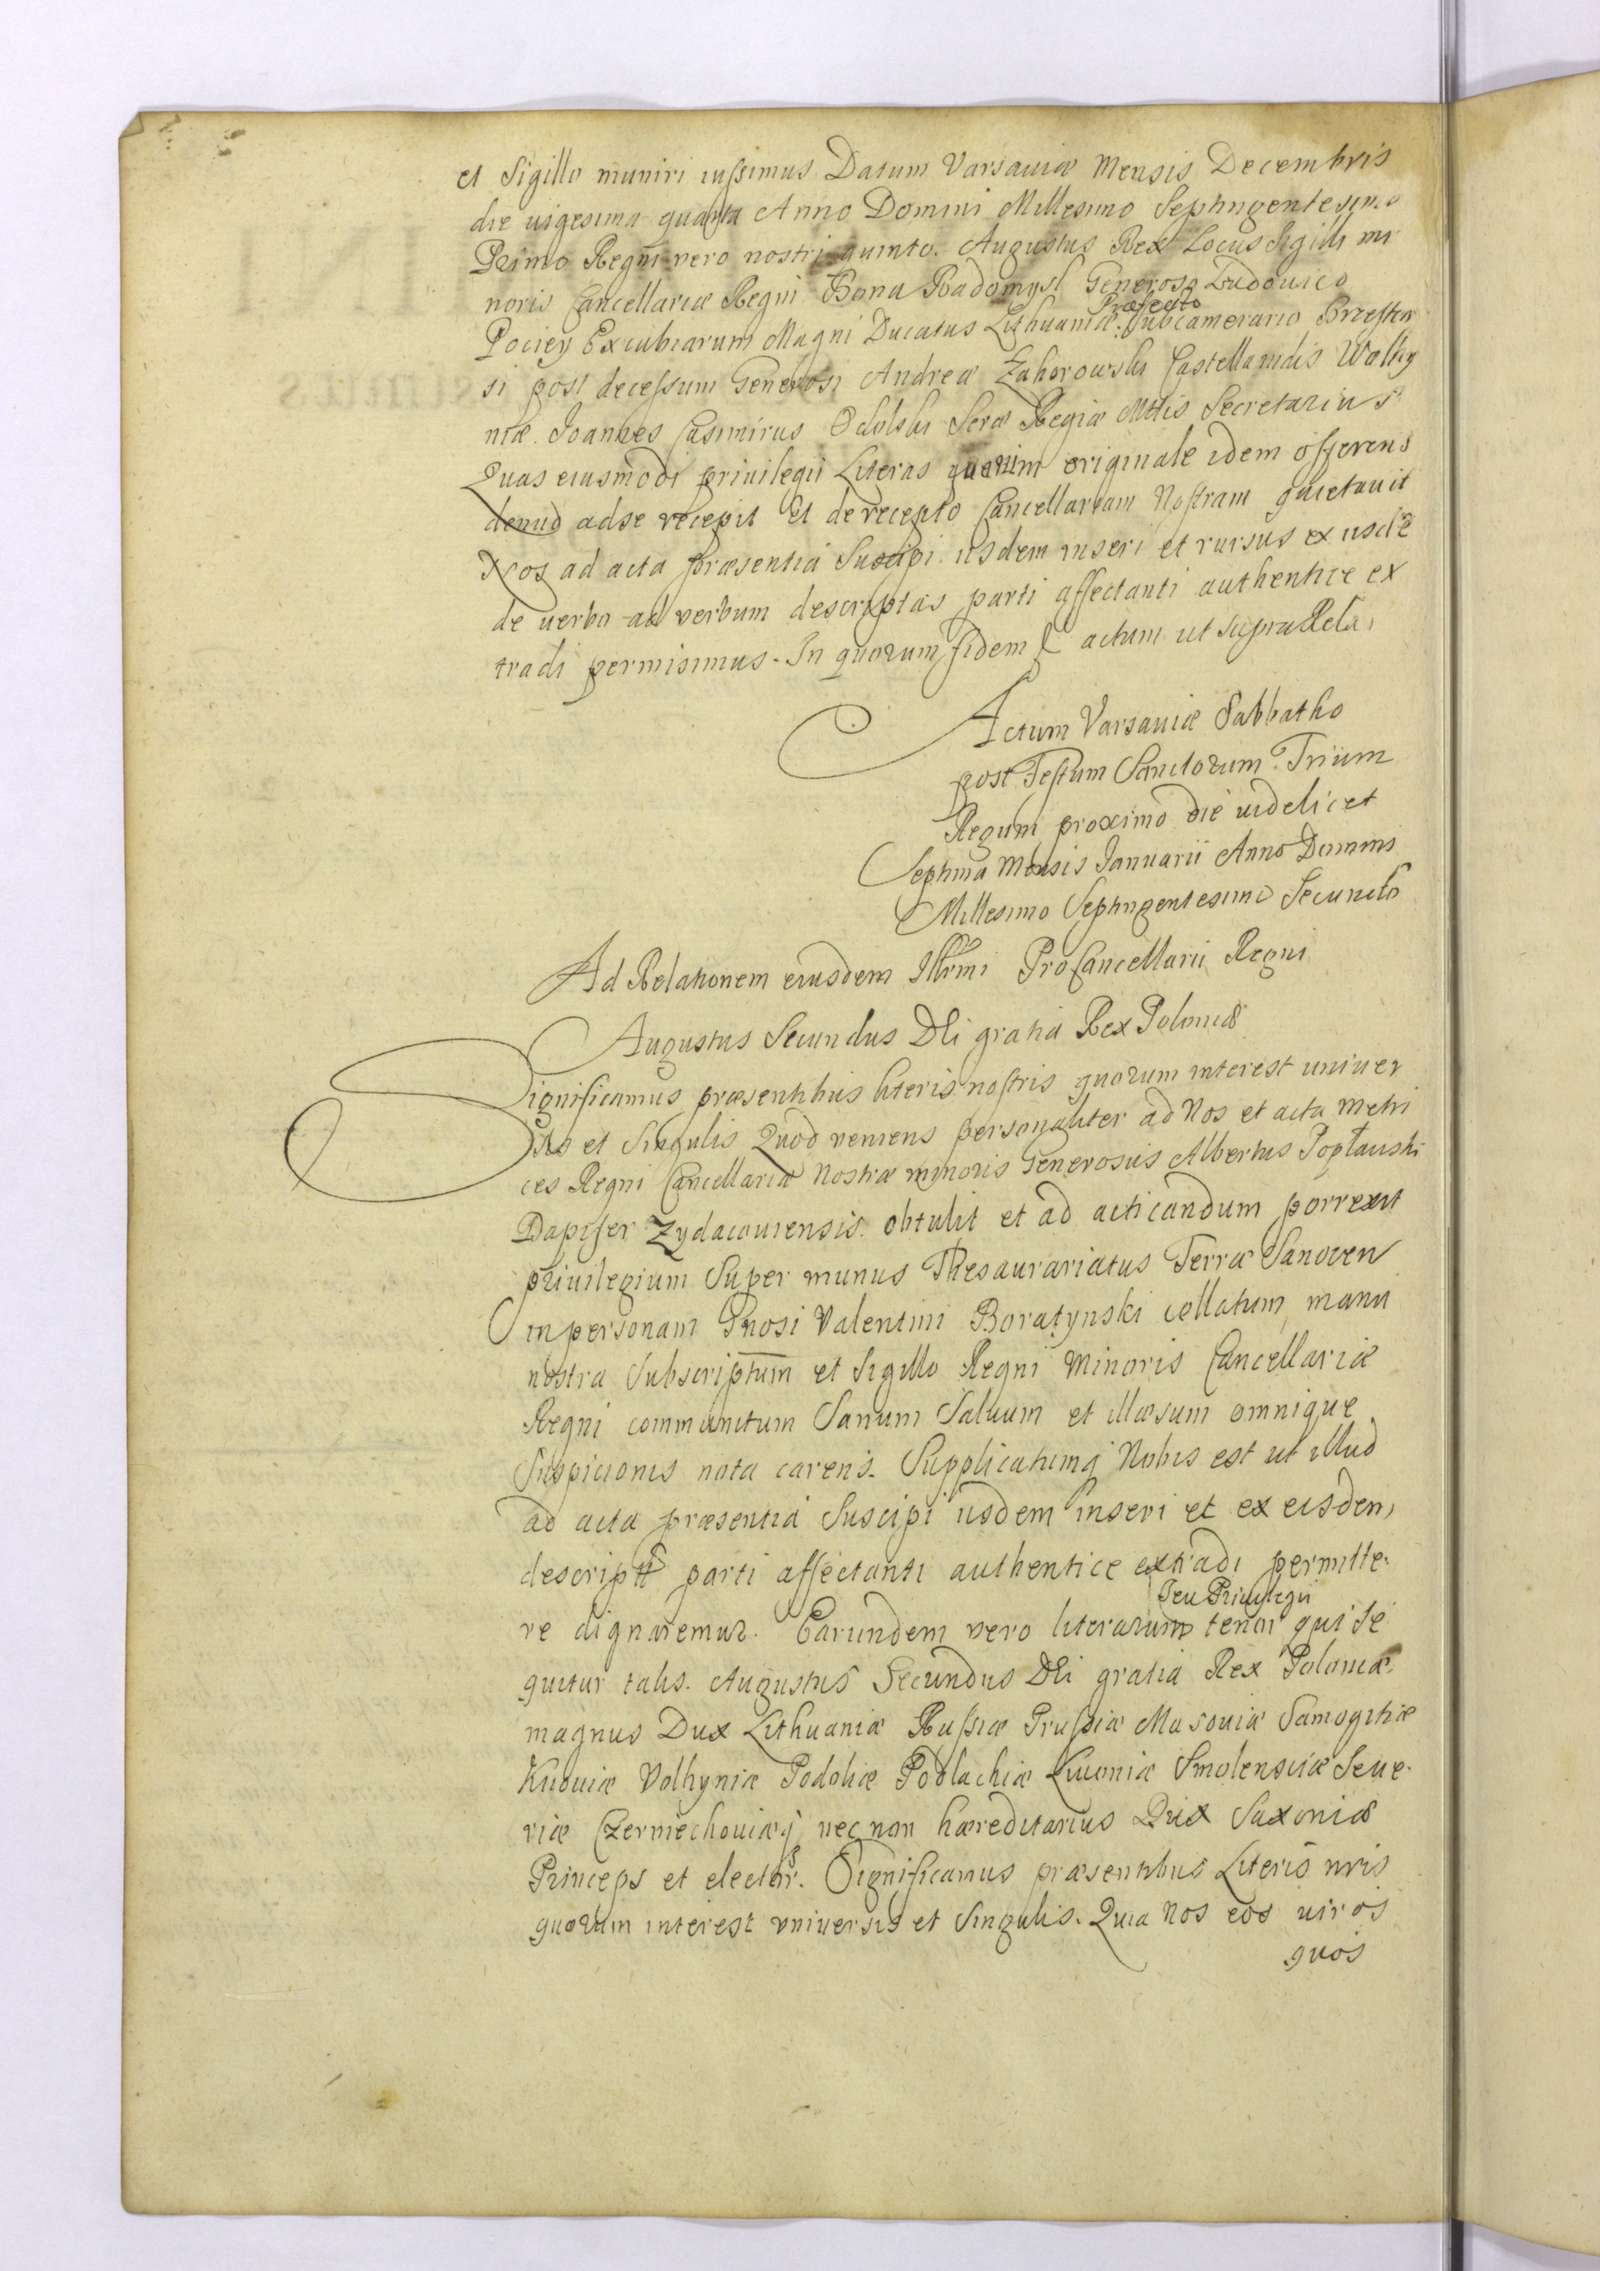 et Sigillo muniri iussimus Datum Varsaviæ Mensis Decembris
die uigesima quarta Anno Domini Millesimo Septingentesimo
Primo Regni vero nostri quinto. Augustus Rex Locus Sigilli mi
noris Cancellariæ Regni Bona Radomysl Generoso Ludouico
Pociey Excubiarum Magni Ducatus Lithuaniæ Præfecto Subcamerario Brzesten
si post decessum Generosi Andreæ Zahorowski Castellanidis Wolhy
niæ. Joannes Casimirus Odolski Scræ Regiæ Mttis Secretarius
Quas eiusmodi priuilegii Literas quarum originale idem offerens
denuo ad se recepit Et de recepto Cancellariam Nostram quietauit
Nos ad acta præsentia Suscipi iisdem inseri et rursus ex iisdē
de uerbo ad verbum descriptas parti affectanti authentice ex
tradi permisimus. In quorum fidem & actum ut supra Rela,
Actum Varsauiæ Sabbatho
post Festum Sanctorum Trium
Regum proximo die uidelicet
Septima Mensis Januarii Anno Domini
Millesimo Septingentesimo Secundo
Ad Relationem eiusdem Illrmi ProCancellarii Regni
Augustus Secundus Dei gratia Rex Poloniæ
Significamus præsentibus literis nostris quorum interest univer
sis et Singulis Quod veniens personaliter ad Nos et acta Metri
ces Regni Cancellariæ Nostræ minoris Generosus Albertus Popławski
Dapifer Zydacouiensis obtulit et ad acticandum porrexit
priuilegium Super munus Thesaurariatus Terræ Sanocen
in personam Gnosi Valentini Boratynski collatum, manu
nostra Subscriptum et Sigillo Regni Minoris Cancellariæ
Regni communitum Sanum Saluum et illæsum omnique
Suspicionis nota carens. Supplicatumq Nobis est ut illud
ad acta præsentia Suscipi iisdem inseri et ex eisdem,
descript parti affectanti authentice extradi permitte,
re dignaremur. Earundem vero literarum seu Priuilegii tenor qui se
quitur talis. Augustus Secundus Dei gratia Rex Poloniæ
magnus Dux Lithuaniæ Russiæ Prussiæ Masouiæ Samogitiæ
Kiiouiæ Volhyniæ Podoliæ Podlachiæ Liuoniæ Smolensciæ Seue,
riæ Czerniechouiæq necnon hæreditarius Dux Saxoniæ
Princeps et elector. Significamus præsentibus Literis nris
quorum interest vniuersis et Singulis. Quia Nos eos uiros
quos